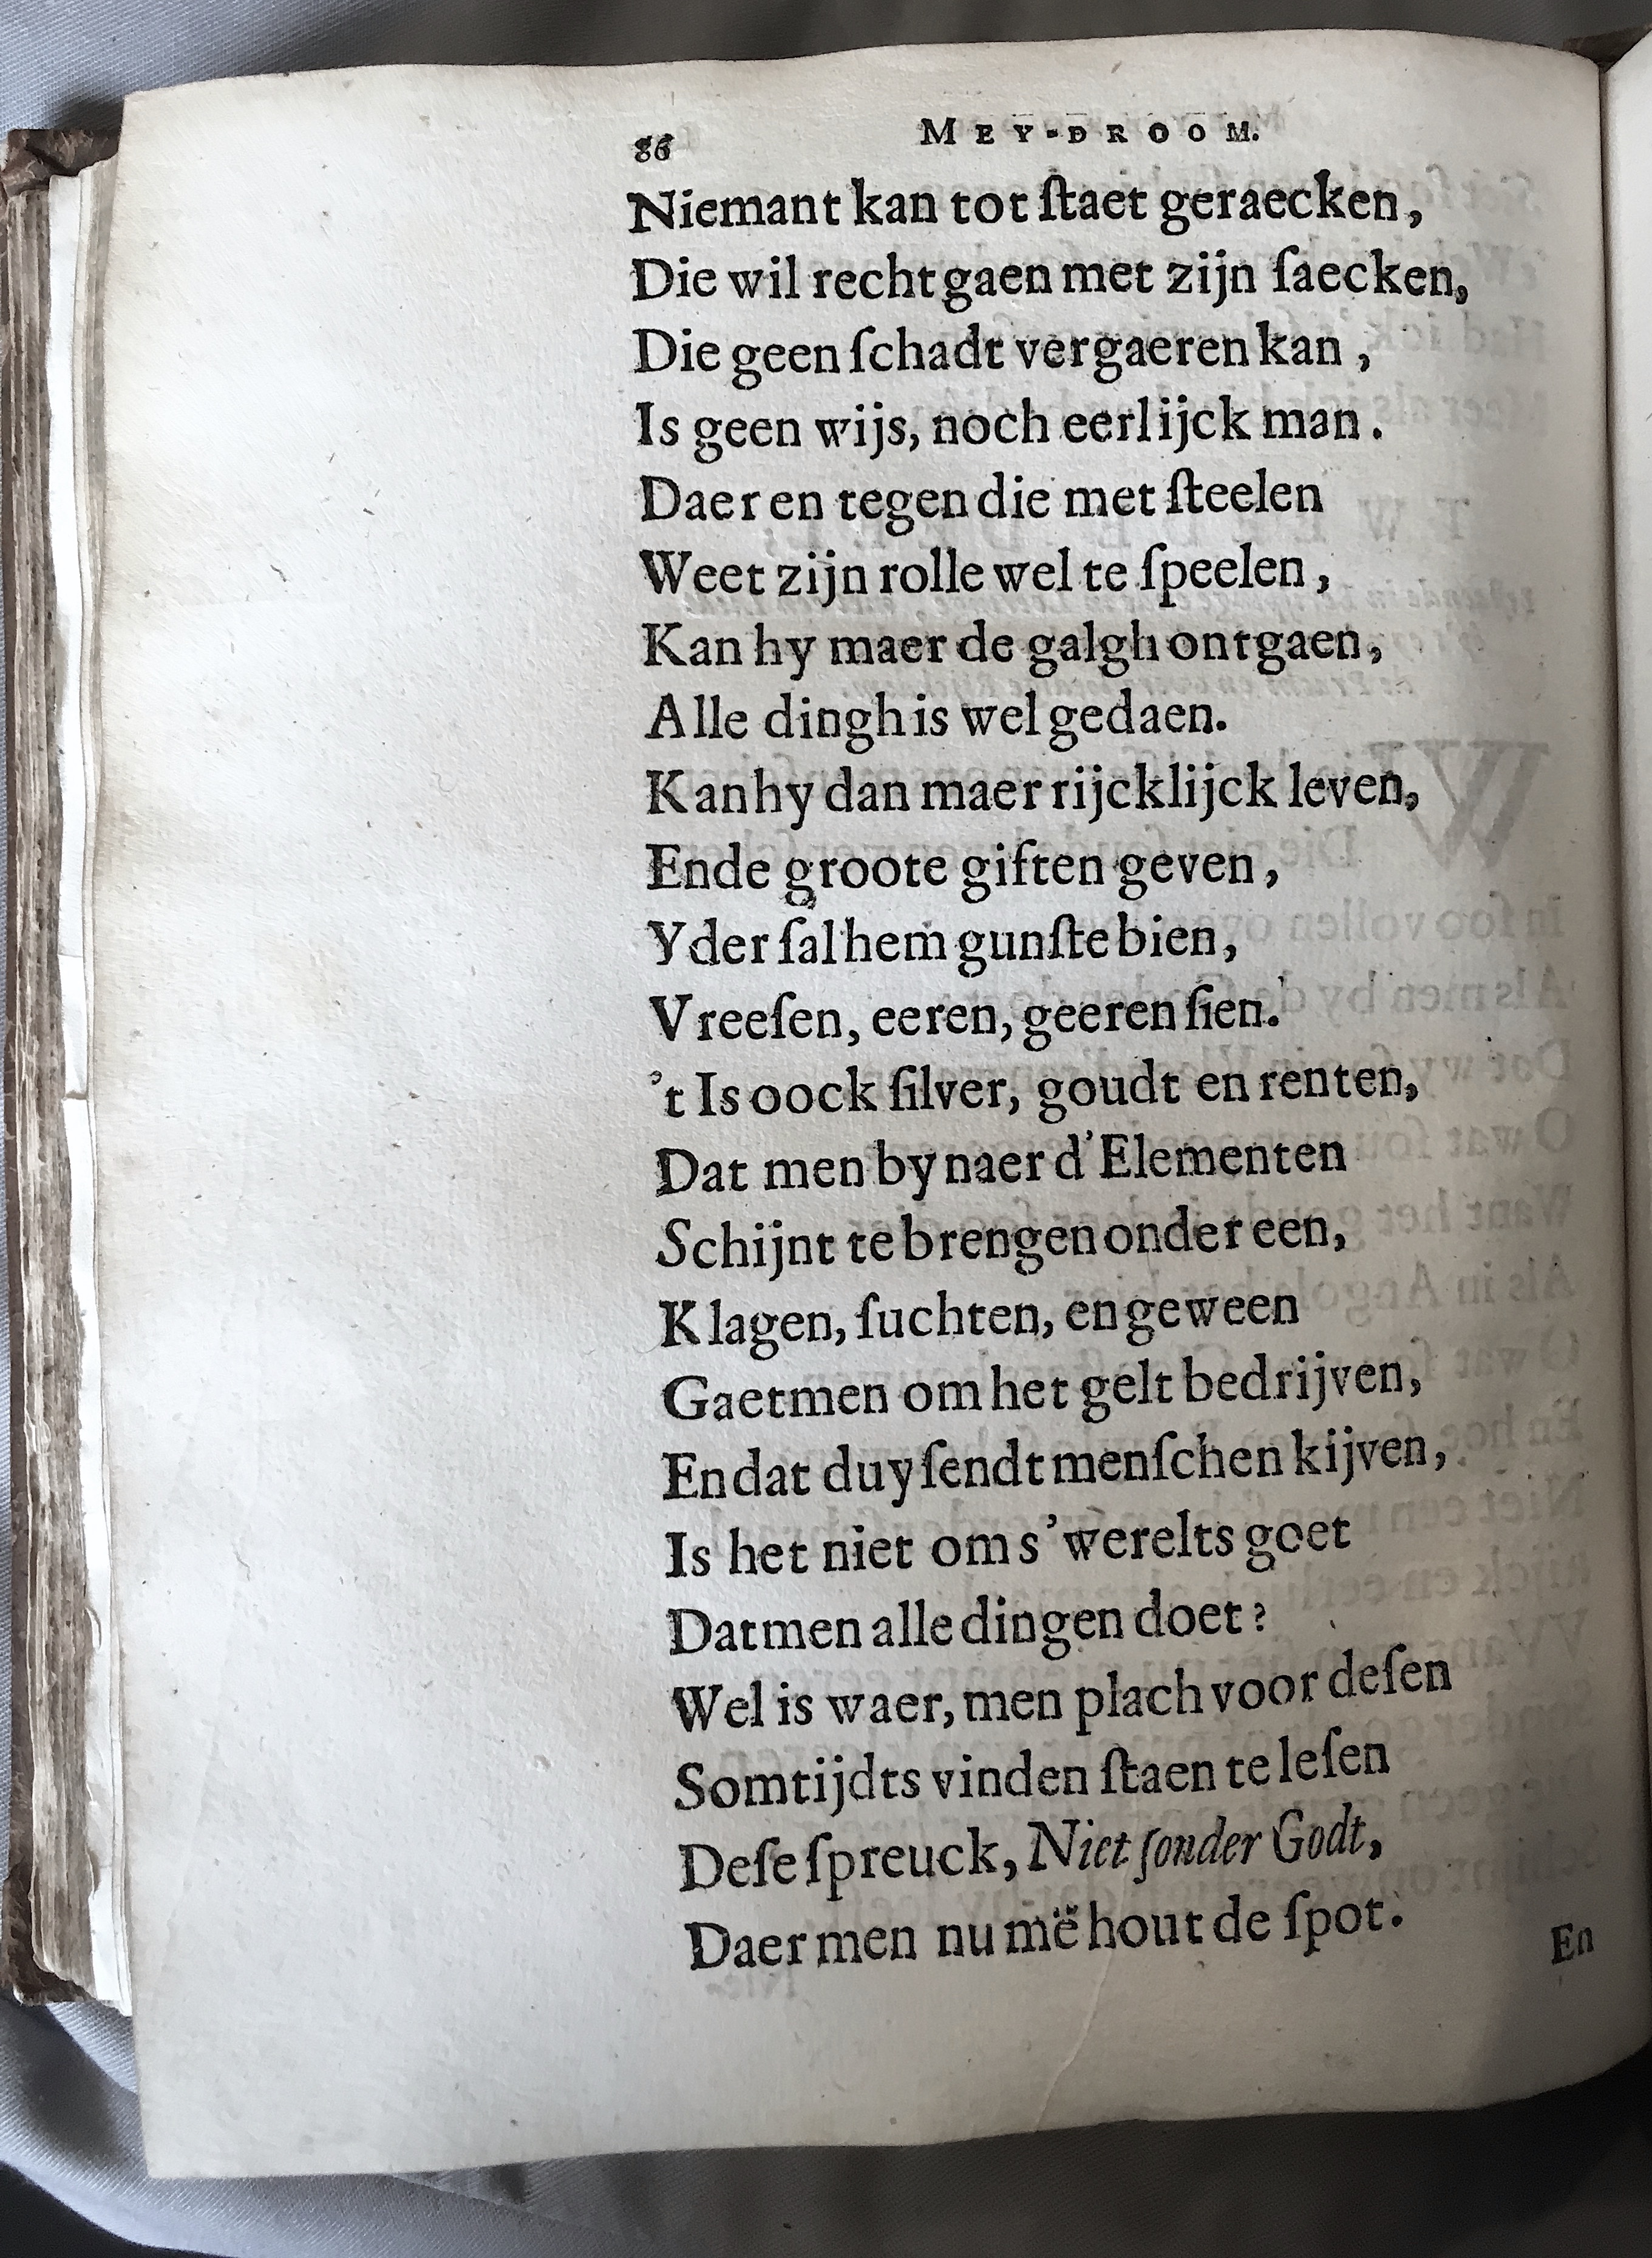 86 MEY-DROOM.
Niemant kan tot ſtaet geraecken,
Die wil recht gaen met zijn ſaecken,
Die geen ſchadt vergaeren kan,
Is geen wijs, noch eerlijck man.
Daer en tegen die met ſteelen
Weet zijn rolle wel te ſpeelen,
Kan hy maer de galgh ontgaen,
Alle dingh is wel gedaen.
Kan hy dan maer rijcklijck leven,
Ende groote giften geven,
Yder ſal hem gunſte bien,
Vreeſen, eeren, geeren ſien.
't Is oock ſilver, goudt en renten,
Dat men by naer d'Elementen
Schijnt te brengen onder een,
Klagen, ſuchten, en geween
Gaet men om het gelt bedrijven,
En dat duyſendt menſchen kijven,
Is het niet om s'werelts goet
Dat men alle dingen doet?
Wel is waer, men plach voor deſen
Somtijdts vinden ſtaen te leſen
Deſe ſpreuck, Niet ſonder Godt,
Daer men nu më hout de ſpot.
En